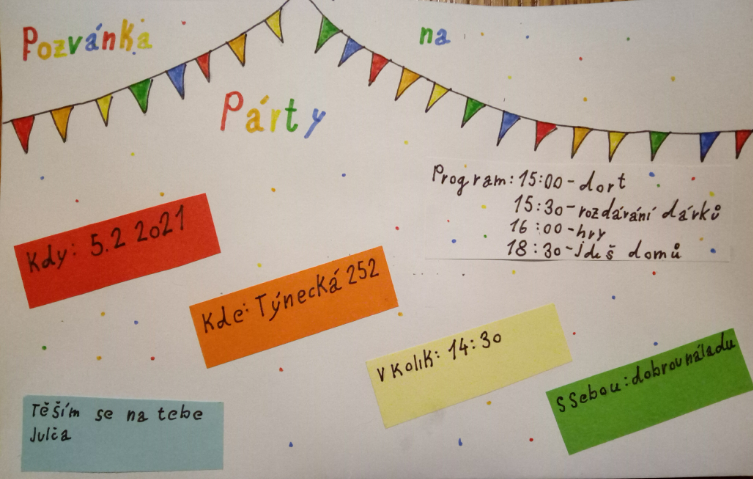 Pozvánka na
Párty
Program: 15:00-dort
15:30-rozdárání dárků
16:00-hry
18:30-jdeš domů
Kdy: 5.2 2021
Kde: Týnecká 252
V Kolik: 14:30
S Sebou: dobrou náladu
Těším se na tebe
Julča